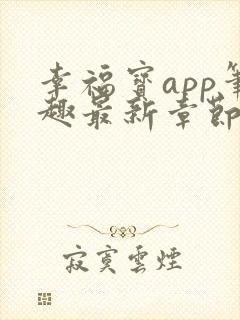 幸福寳app筆
趣最新章節
寂寞雲煙